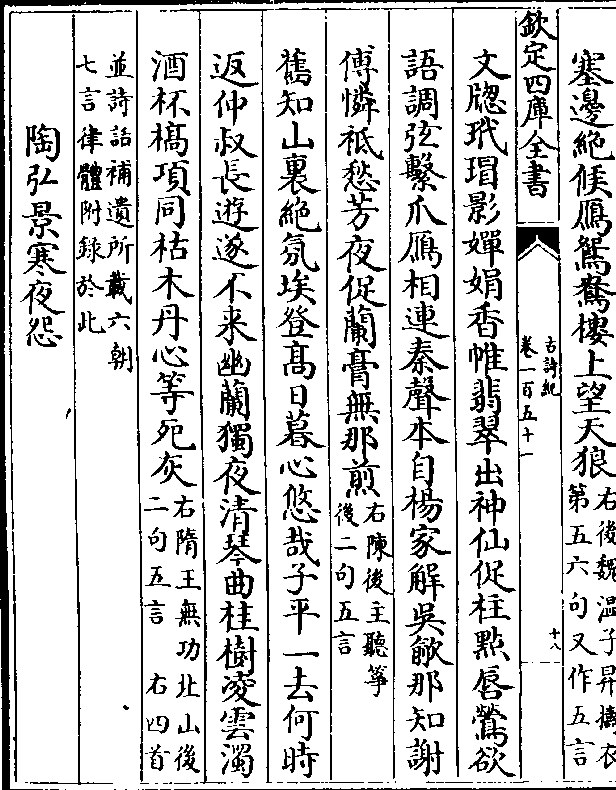 塞邊絶候鴈鴛鴦樓上望天狼右後魏温子昇擣衣第五六句又作五言
欽定四庫全書
古詩紀
卷一百五十一
十八
文牕玳瑁影嬋娟香帷翡翠出神仙促柱㸃唇鶯欲
語調弦繫爪鴈相連秦聲本自楊家解吳歈那知謝
傅憐祗愁芳夜促蘭膏無那煎右陳後主聽箏後二句五言
舊知山裏絶氛埃登髙日暮心悠哉子平一去何時
返仲叔長遊遂不来幽蘭獨夜清琴曲桂樹凌雲濁
酒杯槁項同枯木丹心等死灰右隋王無功北山後二句五言 右四首
並詩話補遺所載六朝
七言律體附録於此
陶弘景寒夜怨